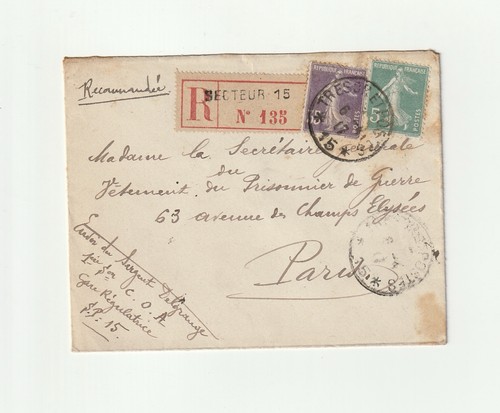 Recommandée
SECTEUR 15
R
N° 135
REPUBLIQUE FRANÇAISE
REPUBLIQUE FRANÇAISE
5
POSTES
TRESOR ET POSTES
* 15 *
Madame la Secrétaire générale
du
Vêtement du Prisonnier de Guerre
63 avenue des Champs Elysées
Paris
POSTES
* 15 *
Envoi du Sergent Delgrange
C.O.A
Gare Régulatrice
S.P. 15.